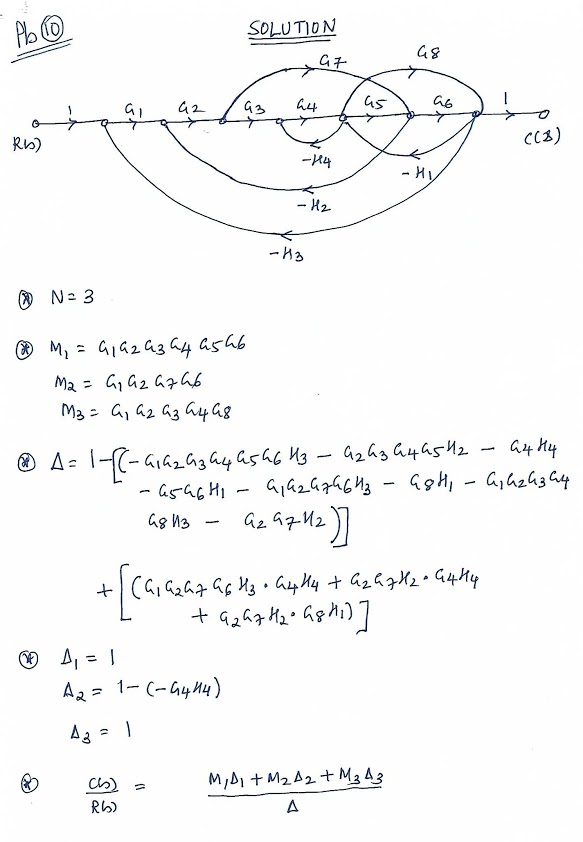 Pb 10
SOLUTION
G7 G8
1 G1 G2 G3 G4 G5 G6 1
R(s) C(s)
-H4
-H1
-H2
-H3
* N=3
* M1 = G1G2G3G4G5G6
M2 = G1G2G7G6
M3 = G1G2G3G4G8
* Δ = 1-[(-G1G2G3G4G5G6H3 - G2G3G4G5H2 - G4H4
- G5G6H1 - G1G2G7G6H3 - G8H1 - G1G2G3G4
G8H3 - G2G7H2)]
+[(G1G2G7G6H3·G4H4 + G2G7H2·G4H4
+ G2G7H2·G8H1)]
* Δ1 = 1
Δ2 = 1-(-G4H4)
Δ3 = 1
* C(s)/R(s) = M1Δ1+M2Δ2+M3Δ3/Δ